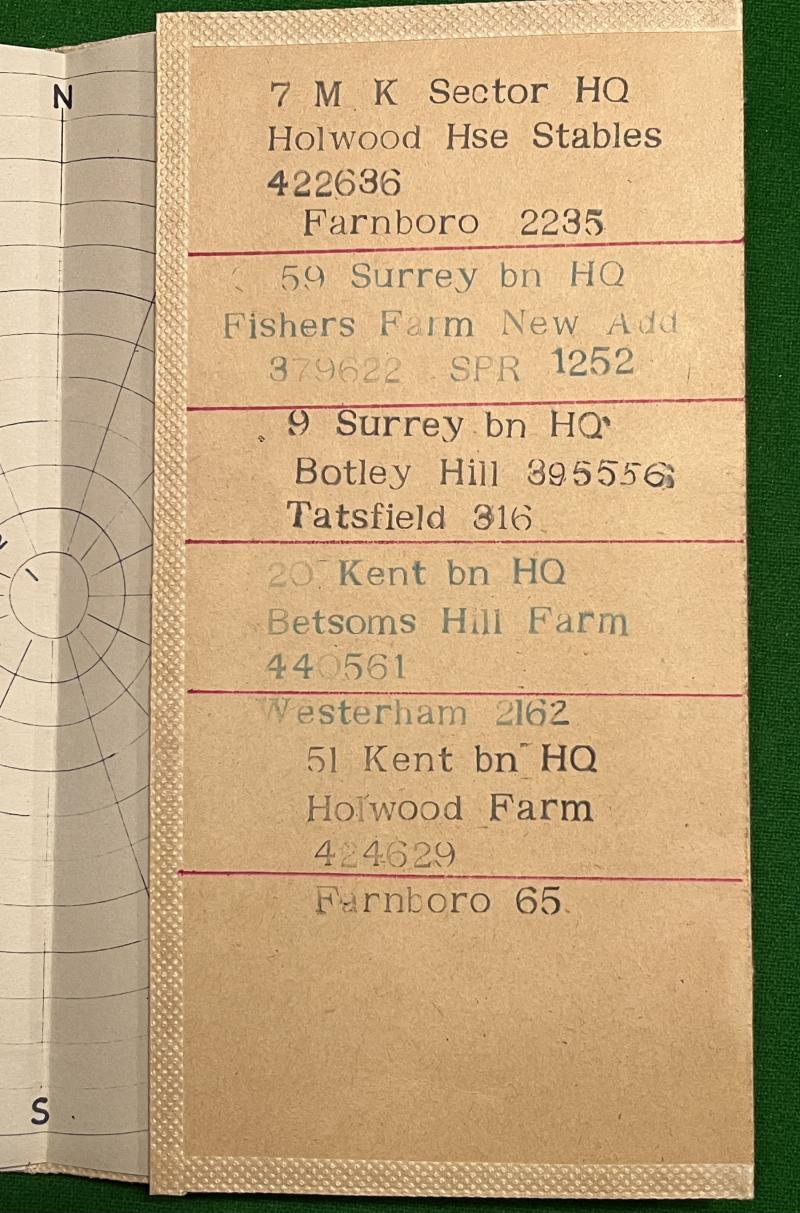 N
S
7 M K Sector HQ
Holwood Hse Stables
422636
Farnboro 2235
59 Surrey bn HQ
Fishers Farm New Add
379622 SPR 1252
9 Surrey bn HQ
Botley Hill 395556
Tatsfield 316
20 Kent bn HQ
Betsoms Hill Farm
440561
Westerham 2162
51 Kent bn HQ
Holwood Farm
424629
Farnboro 65